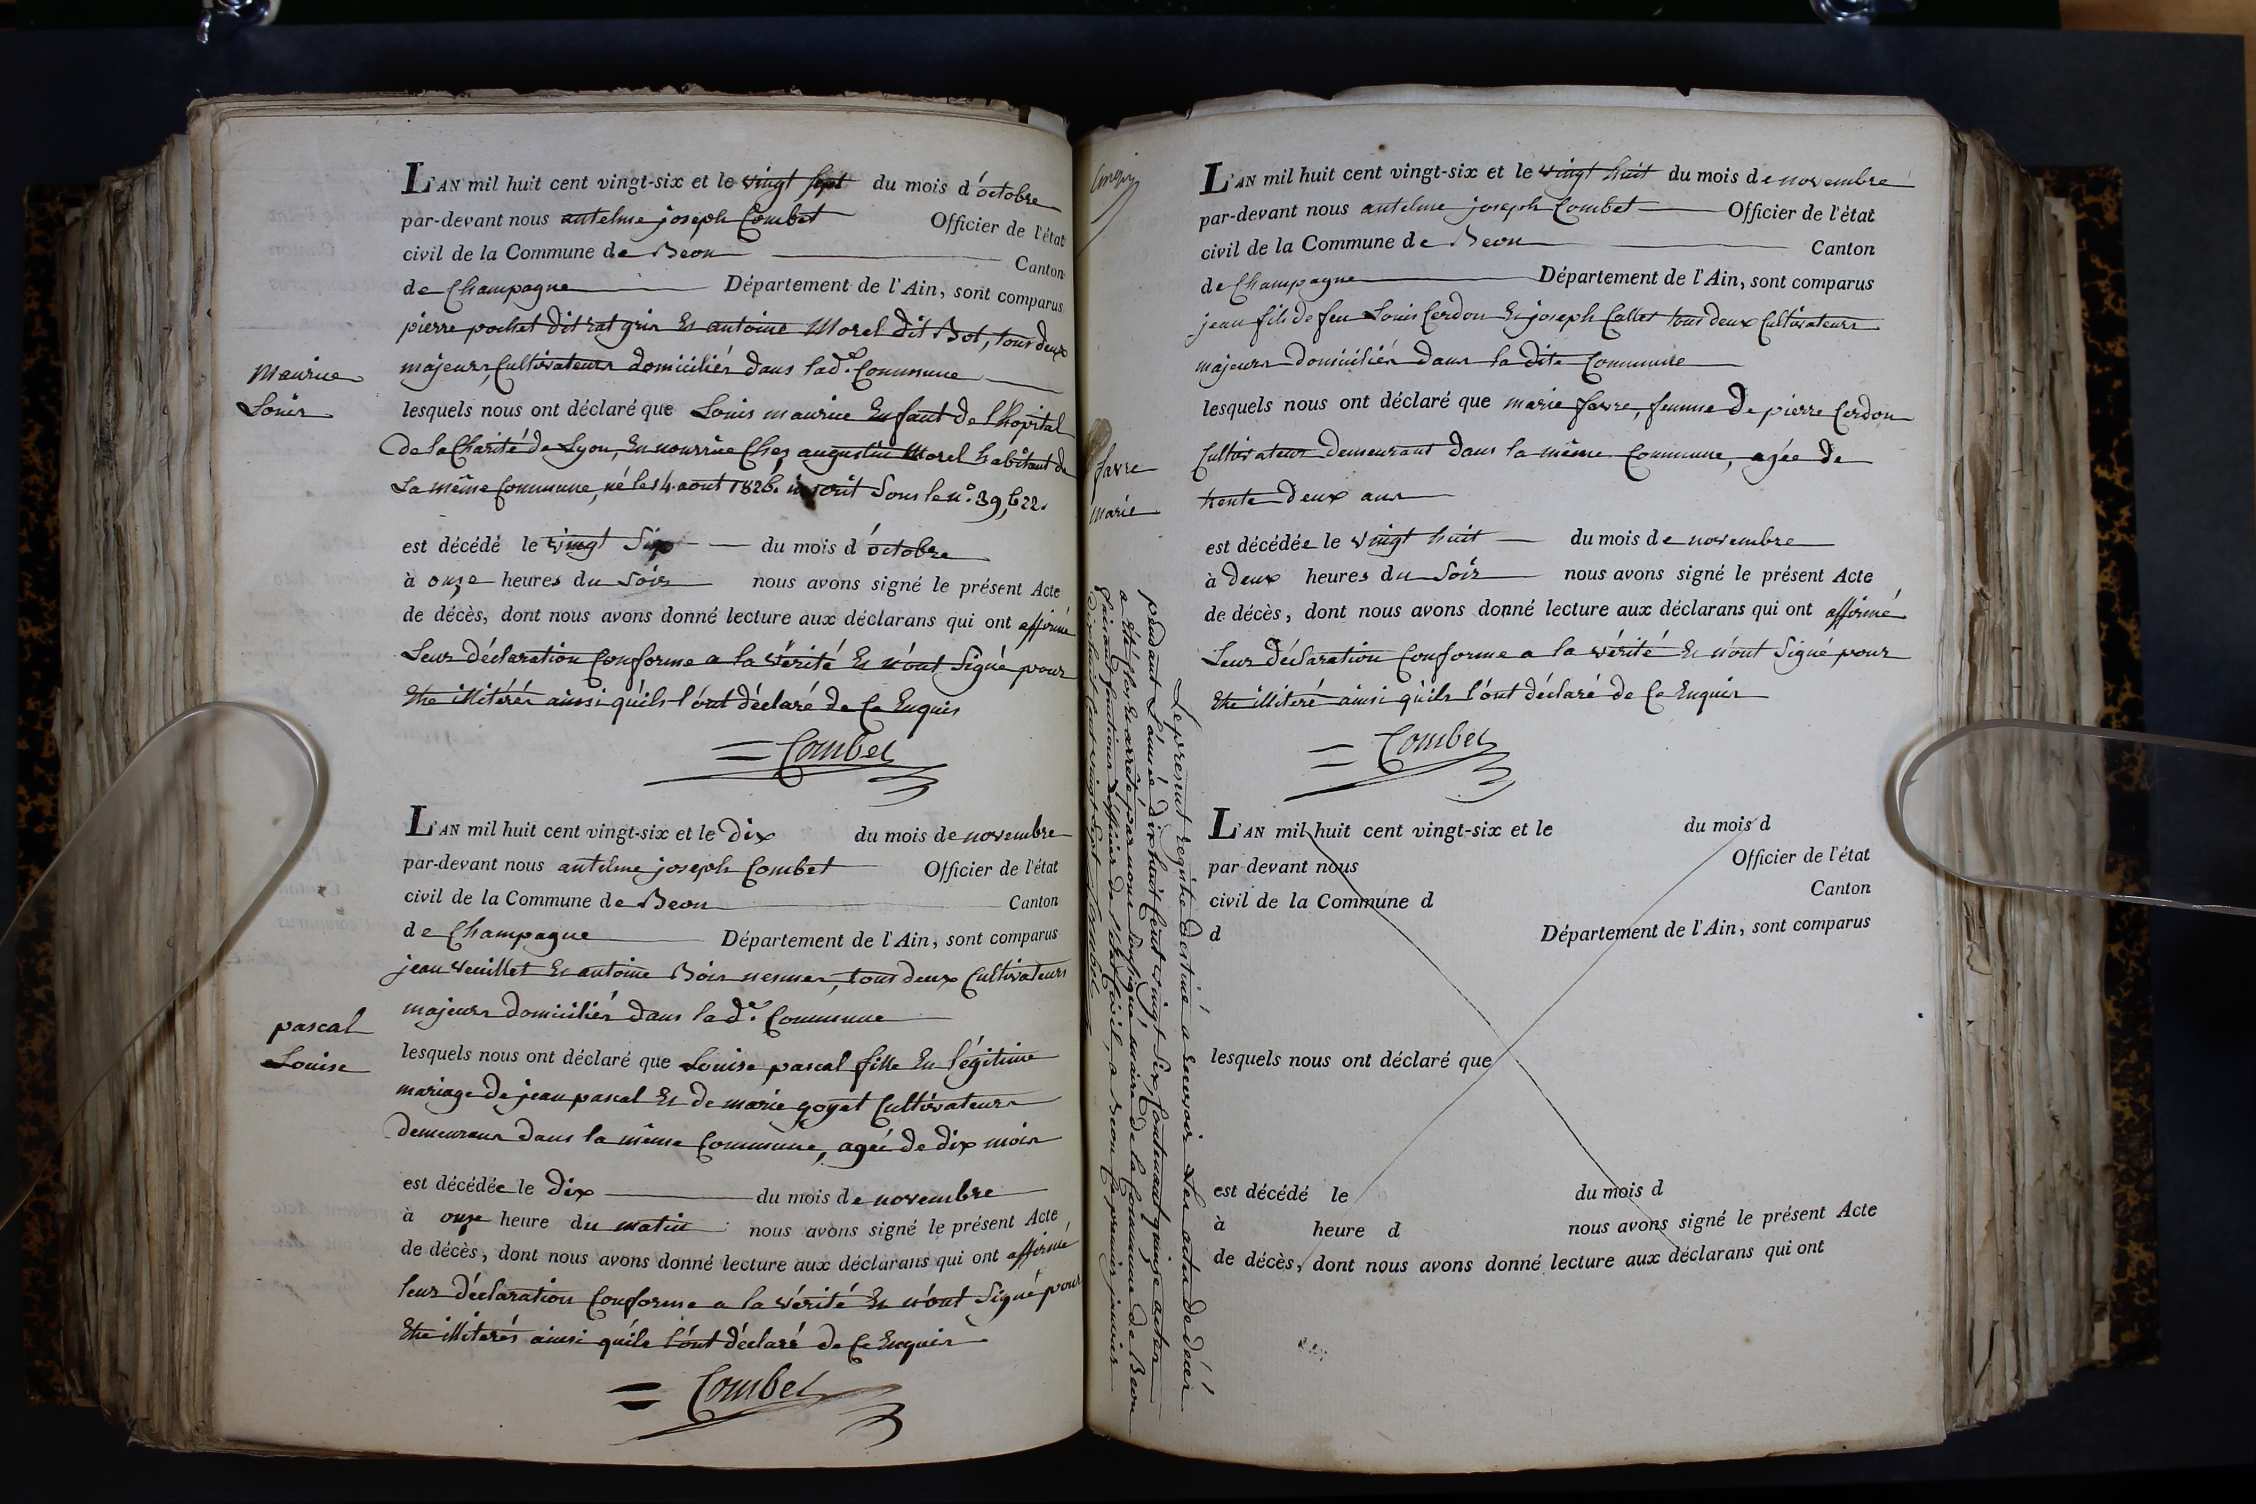 L'AN mil huit cent vingt-six et le vingt sept du mois d'octobre
par-devant nous antelme joseph Combet Officier de l'état
civil de la Commune de Béon Canton
de Champagne Département de l'Ain, sont comparus
pierre pochet dit rat gris Et antoine Morel dit Bot, tous deux
majeurs, Cultivateurs domiciliés dans la de. Commune
Maurice
Louis
lesquels nous ont déclaré que Louis maurice Enfant de l'hopital
De la Charité de Lyon, En nourrice Chez augustin Morel habitant de
La même Commune, né le 14 aout 1826. inscrit Sous le n° 39,622.
est décédé le vingt Six du mois d'octobre
à onze heures du Soir nous avons signé le présent Acte
de décès, dont nous avons donné lecture aux déclarans qui ont affirmé
Leur déclaration Conforme a la vérité Et n'ont Signé pour
Etre illitérés ainsi qu'ils l'ont déclaré de Ce Enquis
Combet
L'AN mil huit cent vingt-six et le Dix du mois de novembre
par-devant nous antelme joseph Combet Officier de l'état
civil de la Commune de Béon Canton
de Champagne Département de l'Ain, sont comparus
jean veuillet Et antoine Bois nesmes, tous deux Cultivateurs
majeurs domiciliés dans la de. Commune
pascal
Louise
lesquels nous ont déclaré que Louise pascal fille En légitime
mariage de jean pascal Et de marie goyet Cultivateurs
demeurans dans la même Commune, agée de dix mois
est décédée le Dix du mois de novembre
à onze heure du matin nous avons signé le présent Acte
de décès, dont nous avons donné lecture aux déclarans qui ont affirmé
leur déclaration Conforme a la vérité Et n'ont Signé pour
Etre illiterés ainsi qu'ils l'ont déclaré de Ce Enquis
Combet
L'AN mil huit cent vingt-six et le vingt huit du mois de novembre
par-devant nous antelme joseph Combet Officier de l'état
civil de la Commune de Beon Canton
de Champagne Département de l'Ain, sont comparus
jean fils de feu Louis Cerdon Et joseph Callet tous deux Cultivateurs
majeurs domiciliés dans la dite Commune
favre
marie
lesquels nous ont déclaré que marie favre, femme de pierre Cerdon
Cultivateur demeurant dans la même Commune, agée de
trente deux ans
est décédée le vingt huit du mois de novembre
à deux heures du Soir nous avons signé le présent Acte
de décès, dont nous avons donné lecture aux déclarans qui ont affirmé
Leur déclaration Conforme a la vérité Et n'ont Signé pour
Etre illiteré ainsi qu'ils l'ont déclaré de Ce Enquis
Combet
Le présent registre destiné a recevoir Les actes de décès
pendant L'année dix huit Cent vingt Six Contenant quinze actes
a été Clos et arrêté par nous Soussigné maire de la Commune de Beon
faisant fonctions d'officier de l'état Civil, a Beon le premier janvier
dix huit Cent vingt Sept
L'AN mil huit cent vingt-six et le du mois d
par devant nous Officier de l'état
civil de la Commune d Canton
d Département de l'Ain, sont comparus
lesquels nous ont déclaré que
est décédé le du mois d
à heure d nous avons signé le présent Acte
de décès, dont nous avons donné lecture aux déclarans qui ont